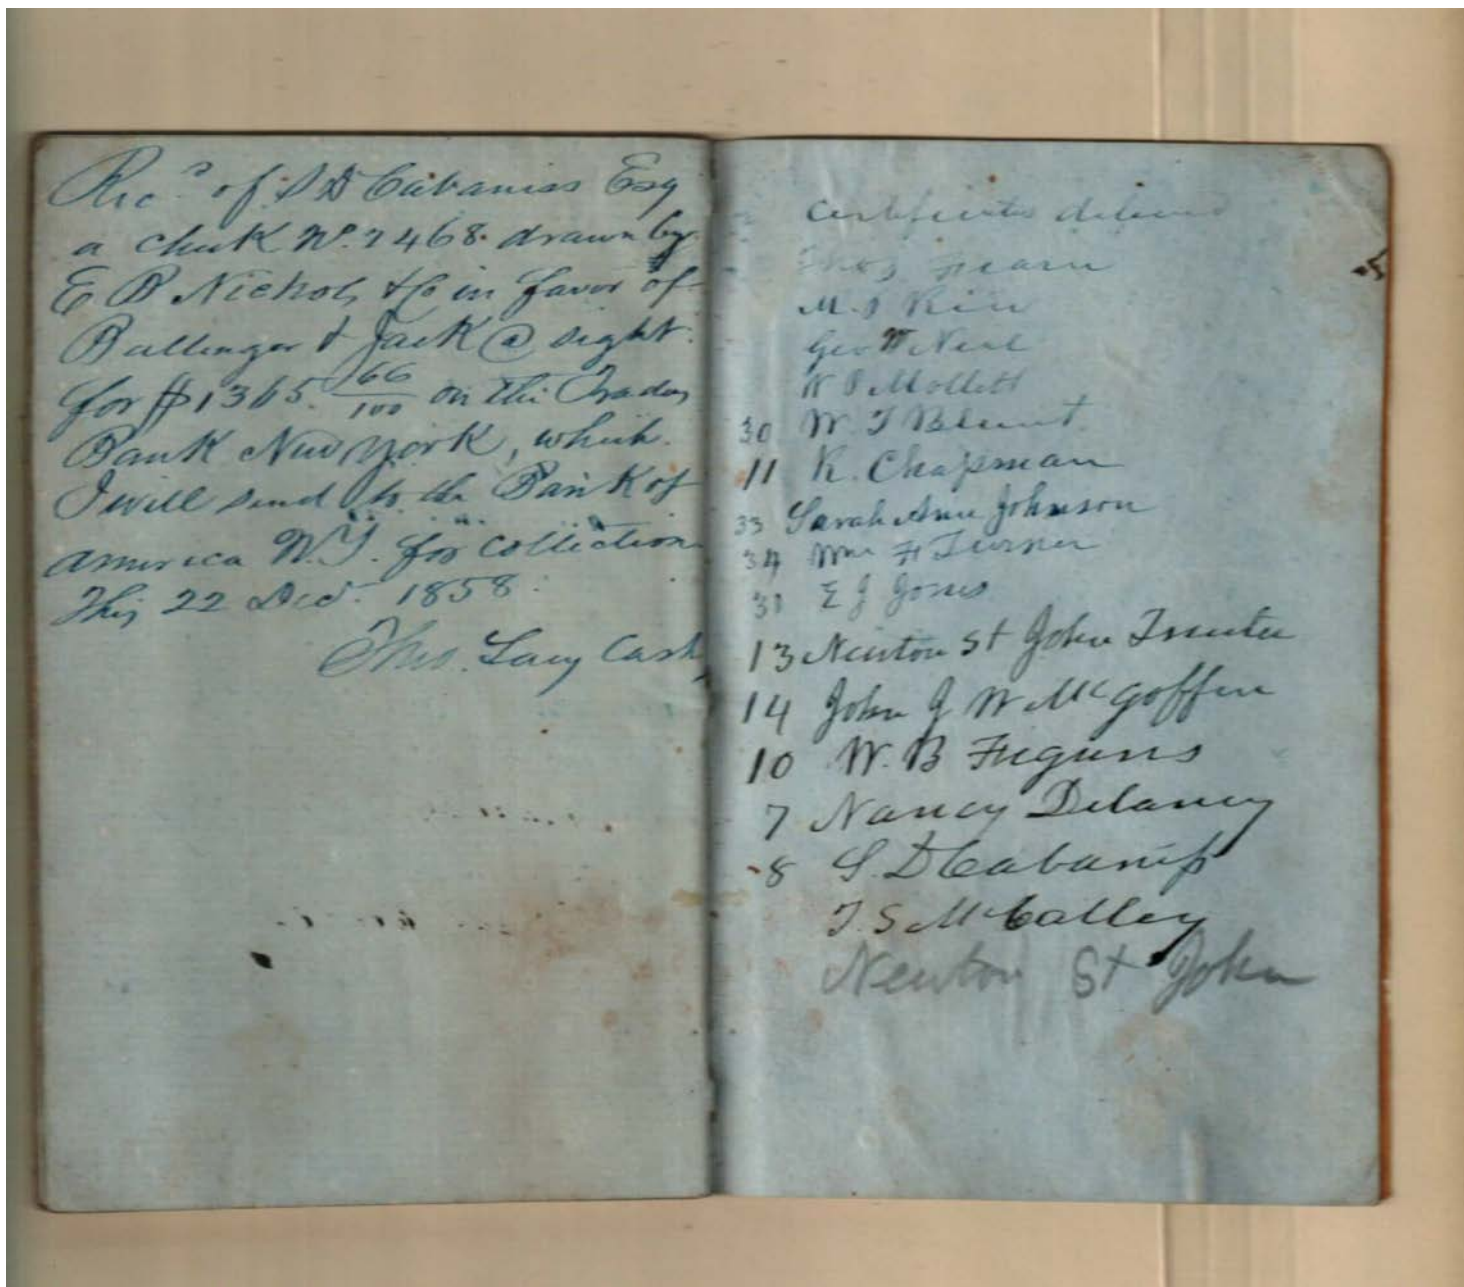 Recd of S D Cabaniss Esq
a check No. 2468 drawn by
E B Nichols & Co in favor of
Ballinger & Jack @ sight
for $1365 66/100 on the Traders
Bank New York, which
I will send to the Bank of
America N.Y. for collection
This 22 Decr. 1858
Thos. Lacy Cash
Certificates delivered
Thos Fearn
Geo W Neal
30 W. T Blunt
11 R. Chapman
33 Sarah Ann Johnson
34 Wm H Turner
31 E J Jones
13 Newton St John Trustee
14 John J W McGoffin
10 W. B Figures
7 Nancy Delaney
8 S. D Cabaniss
T. S McCalley
Newton St John